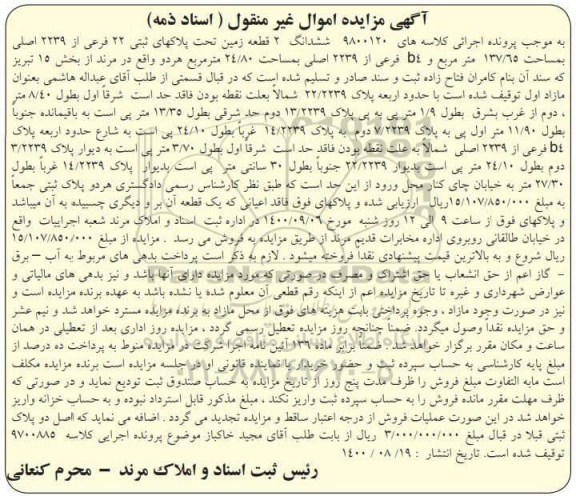 آگهی مزایده اموال غیر منقول ( اسناد ذمه)
به موجب پرونده اجرائی کلاسه های ۹۸۰۰۱۲۰ ششدانگ ۲ قطعه زمین تحت پلاکهای ثبتی ۲۲ فرعی از ۲۲۳۹ اصلی
بمساحت ۱۳۷/۶۵ متر مربع و b۴ فرعی از ۲۲۳۹ اصلی بمساحت ۲۴/۸۰ مترمربع هردو واقع در مرند از بخش ۱۵ تبریز
که سند آن بنام کامران فتاح زاده ثبت و سند صادر و تسلیم شده است که در قبال قسمتی از طلب آقای عبداله هاشمی بعنوان
مازاد اول توقیف شده است با حدود اربعه پلاک ۲۲/۲۲۳۹ شمالاً بعلت نقطه بودن فاقد حد است شرقاً اول بطول ۸/۴۰ متر
، دوم از غرب بشرق بطول ۱/۹ متر پی به پی پلاک ۱۳/۲۲۳۹ دوم حد شرقی بطول ۱۳/۳۵ متر پی است به باقیمانده جنوباً
بطول ۱۱/۹۰ متر اول پی به پلاک ۷/۲۲۳۹ دوم به پلاک ۱۴/۲۲۳۹ غرباً بطول ۲۴/۱۰ پی است به شارع حدود اربعه پلاک
b۴ فرعی از ۲۲۳۹ اصلی شمالاً به علت نقطه بودن فاقد حد است شرقاً اول بطول ۳/۷۰ متر پی است به دیوار پلاک ۳/۲۲۳۹
دوم بطول ۲۴/۱۰ متر پی است بدیوار ۲۲/۲۲۳۹ جنوباً بطول ۳۰ سانتی متر پی است بدیوار پلاک ۱۴/۲۲۳۹ غرباً بطول
۲۷/۳۰ متر به خیابان چای کنار محل ورود از این حد است که طبق نظر کارشناس رسمی دادگستری هردو پلاک ثبتی جمعاً
به مبلغ ۱۵/۱۰۷/۸۵۰/۰۰۰ریال ارزیابی شده و پلاکهای فوق فاقد اعیانی که یک قطعه آن بر و دیگری چسبیده به آن میباشد
و پلاکهای فوق از ساعت ۹ الی ۱۲ روز شنبه مورخ ۱۴۰۰/۰۹/۰۶ در اداره ثبت اسناد و املاک مرند شعبه اجرابیات واقع
در خیابان طالقانی روبروی اداره مخابرات قدیم مرند از طریق مزایده به فروش می رسد . مزایده از مبلغ ۱۵/۱۰۷/۸۵۰/۰۰۰
ریال شروع و به بالاترین قیمت پیشنهادی نقداً فروخته میشود . لازم به ذکر است پرداخت بدهی های مربوط به آب – برق
- گاز اعم از حق انشعاب یا حق اشتراک و مصرف در صورتی که مورد مزایده دارای آنها باشد و نیز بدهی های مالیاتی و
عوارض شهرداری و غیره تا تاریخ مزایده اعم از اینکه رقم قطعی آن معلوم شده یا نشده باشد به عهده برنده مزایده است و
نیز در صورت وجود مازاد ، وجوه پرداختی بابت هزینه های فوق از محل مازاد به برنده مزایده مسترد خواهد شد و نیم عشر
و حق مزایده نقداً وصول میگردد. ضمناً چنانچه روز مزایده تعطیل رسمی گردد ، مزایده روز اداری بعد از تعطیلی در همان
ساعت و مکان مقرر برگزار خواهد شد . ضمناً برابر ماده ۱۳۶ آئین نامه اجرا شرکت در مزایده منوط به پرداخت ده درصد از
مبلغ پایه کارشناسی به حساب سپرده ثبت و حضور خریدار یا نماینده قانونی او در جلسه مزایده است برنده مزایده مکلف
است مابه التفاوت مبلغ فروش را ظرف مدت پنج روز از تاریخ مزایده به حساب صندوق ثبت تودیع نماید و در صورتی که
ظرف مهلت مقرر مانده فروش را به حساب سپرده ثبت واریز نکند ، مبلغ مذکور قابل استرداد نبوده و به حساب خزانه واریز
خواهد شد در این صورت عملیات فروش از درجه اعتبار ساقط و مزایده تجدید می گردد . اضافه می نماید که اصل دو پلاک
ثبتی قبلا در قبال مبلغ ۳/۰۰۰/۰۰۰/۰۰۰ ریال از بابت طلب آقای مجید خاکباز موضوع پرونده اجرایی کلاسه ۹۷۰۰۸۸۵
توقیف شده است. تاریخ انتشار : ۱۹/ ۰۸ / ۱۴۰۰
رئیس ثبت اسناد و املاک مرند – محرم کنعانی